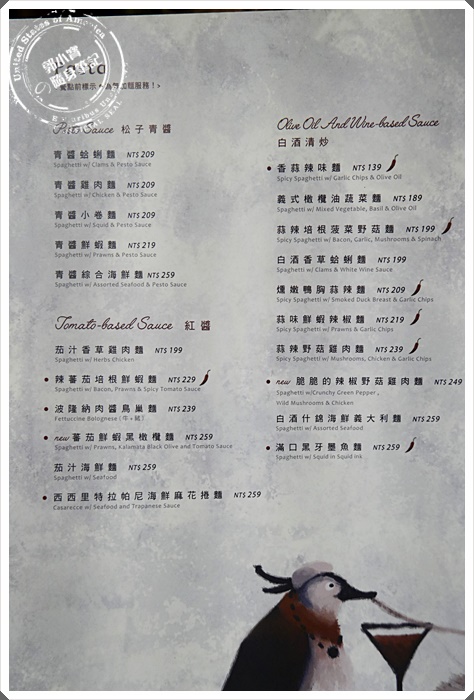 United States of America
郭小寶
隨身筆記
E Pluribus Unum
SEAL
Pasta
餐點前標示
為無加麵服務！>
Pesto Sauce 松子青醬
青醬蛤蜊麵 NT$ 209
Spaghetti w/ Clams & Pesto Sauce
青醬雞肉麵 NT$ 209
Spaghetti w/ Chicken & Pesto Sauce
青醬小卷麵 NT$ 209
Spaghetti w/ Squid & Pesto Sauce
青醬鮮蝦麵 NT$ 219
Spaghetti w/ Prawns & Pesto Sauce
青醬綜合海鮮麵 NT$ 259
Spaghetti w/ Assorted Seafood & Pesto Sauce
Tomato-based Sauce 紅醬
茄汁香草雞肉麵 NT$ 199
Spaghetti w/ Herbs Chicken
辣蕃茄培根鮮蝦麵 NT$ 229
Spaghetti w/ Bacon, Prawns & Spicy Tomato Sauce
波隆納肉醬鳥巢麵 NT$ 239
Fettuccine Bolognese (牛+豬)
new 蕃茄鮮蝦黑橄欖麵 NT$ 259
Spaghetti w/ Prawns, Kalamata Black Olive and Tomato Sauce
茄汁海鮮麵 NT$ 259
Spaghetti w/ Seafood
西西里特拉帕尼海鮮麻花捲麵 NT$ 259
Casarecce w/ Seafood and Trapanese Sauce
Olive Oil And Wine-based Sauce
白酒清炒
香蒜辣味麵 NT$ 139
Spicy Spaghetti w/ Garlic Chips & Olive Oil
義式橄欖油蔬菜麵 NT$ 189
Spaghetti w/ Mixed Vegetable, Basil & Olive Oil
蒜辣培根菠菜野菇麵 NT$ 199
Spicy Spaghetti w/ Bacon, Garlic, Mushrooms & Spinach
白酒香草蛤蜊麵 NT$ 199
Spaghetti w/ Clams & White Wine Sauce
燻嫩鴨胸蒜辣麵 NT$ 209
Spicy Spaghetti w/ Smoked Duck Breast & Garlic Chips
蒜味鮮蝦辣椒麵 NT$ 219
Spicy Spaghetti w/ Prawns & Garlic Chips
蒜辣野菇雞肉麵 NT$ 239
Spicy Spaghetti w/ Mushrooms, Chicken & Garlic Chips
new 脆脆的辣椒野菇雞肉麵 NT$ 249
Spaghetti w/Crunchy Green Pepper,
Wild Mushrooms & Chicken
白酒什錦海鮮義大利麵 NT$ 259
Spaghetti w/ Assorted Seafood
滿口黑牙墨魚麵 NT$ 259
Spaghetti w/ Squid in Squid ink